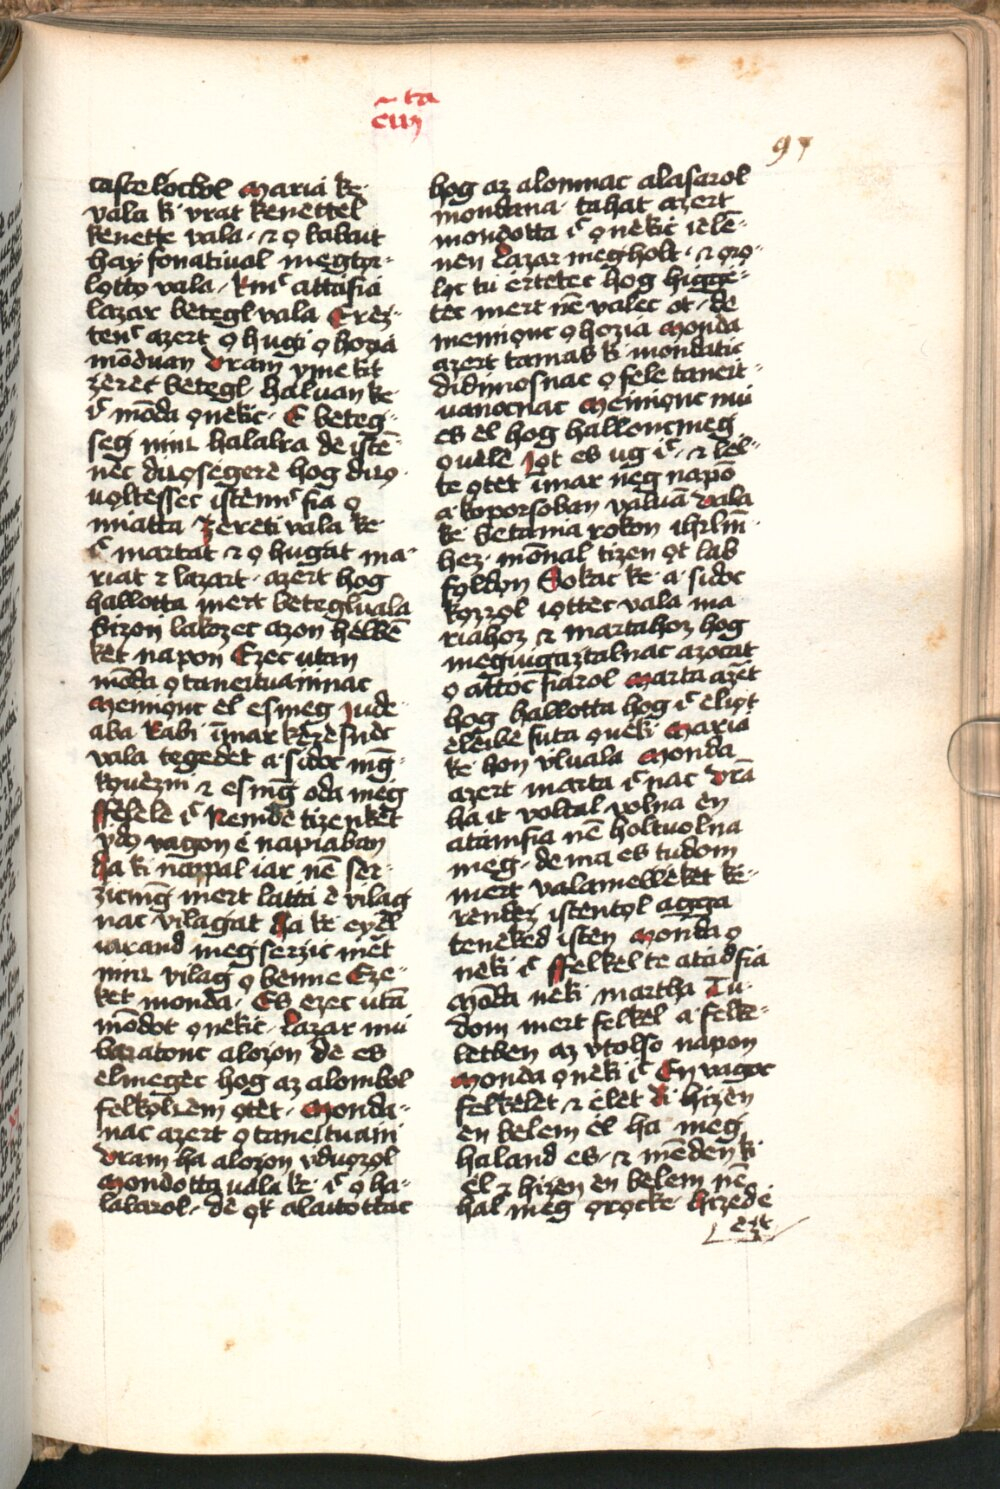 cıııȷ ta
97
casteloc̄bol Maria ke·
vala ki vrat kenettel
kenette vala· ⁊ o̗ labaıt
hay fonatiual megto̗r-
lotto vala· kinc attafia
lazar betegl vala Erez-
tenc azert o̗ hugi o̗ hozia
mōduan Vram yme kit
zeretz betegl haluan ke
ic mōda o̗nekic· E beteg-
seg ninč halalra de istē
nec dučo̗segere hog dičo̗-
uo̗ltessec istennc fia o̗
miatta zereti vala ke
ic martat ⁊ o̗ hugat ma-
riat ⁊ lazart· azert hog
hallotta mert betegluala
bizon lakozec azon helben
ket napon Ezec utan
mōda o̗taneituaninac
Mennionc el esmeg iude
aba Rabi īmar kezesnec
vala tegedet a·sidoc mg̅
ko̗uezni ⁊ esmg̅ oda megi
ffelele ic Nemde tizenket
ydo̗ vagon e napiaban
Ha ki nappal iar nē ser-
zicmg̅ mert latta ē vilag
nac vilagat Ha ke eyel
iarand megserzic mert
ninč vilag o̗ benne Eze-
ket monda· Es ezec utā
mōdot o̗nekic· Lazar mü
baratonc alozon de es
elmegec hog az alombol
felko̗lčem o̗tet· Monda-
nac azert o̗ taneituani
Vram ha alozon yduo̗zo̗l
Mondotta vala ke· ic o̗ ha-
lalarol· de o̗k alaitottac
hog az alomnac alasarol
mondana· tahat azert
mondotta ic o̗nekic ielē-
nen Lazar megholt· ⁊ o̗ro̗-
lo̗c tu ertetec hog higge-
tec mert nē valec ot· de
mennionc o̗ hozia Monda
azert tamas ki mondatic
didimosnac o̗ fele taneit-
uanocnac Mennionc mü
es el hog hallioncmeg
o̗uele Io̗t es ug ic· ⁊ lel-
te o̗tet īmar neg napō
a·koporsoban valuā Vala
ke· betania rokon ihrlm̄-
hez· mōnal tizen o̗t lab
fo̗ldo̗n Sokac ke· a·sidoc
ko̗zzo̗l io̗ttec vala ma
riahoz ⁊ martahoz hog
meguigaztalnac azocat
o̗ attoc fiarol Marta azet
hog hallotta hog ic elio̗t
eleibe futa o̗neki Maria
ke· hon vluala Monda
azert marta ic nac Vrā
ha it voltal volna en
atāmfia nē holtuolna
meg· de ma es tudom
mert valamelleket ke-
rendez istento̗l agga
teneked isten Monda o̗
neki ic ffelkel te atadfia
Mōda neki martha Tu-
dom mert felkel a·felke-
letben az vtolso napon
Monda o̗neki ic En vagoc
felkelet ⁊ elet Ki hizen
en belem el ha meg
haland es· ⁊ mēden ki
el ⁊ hizen en belem nē
hal meg o̗ro̗cke· hizede
ezt